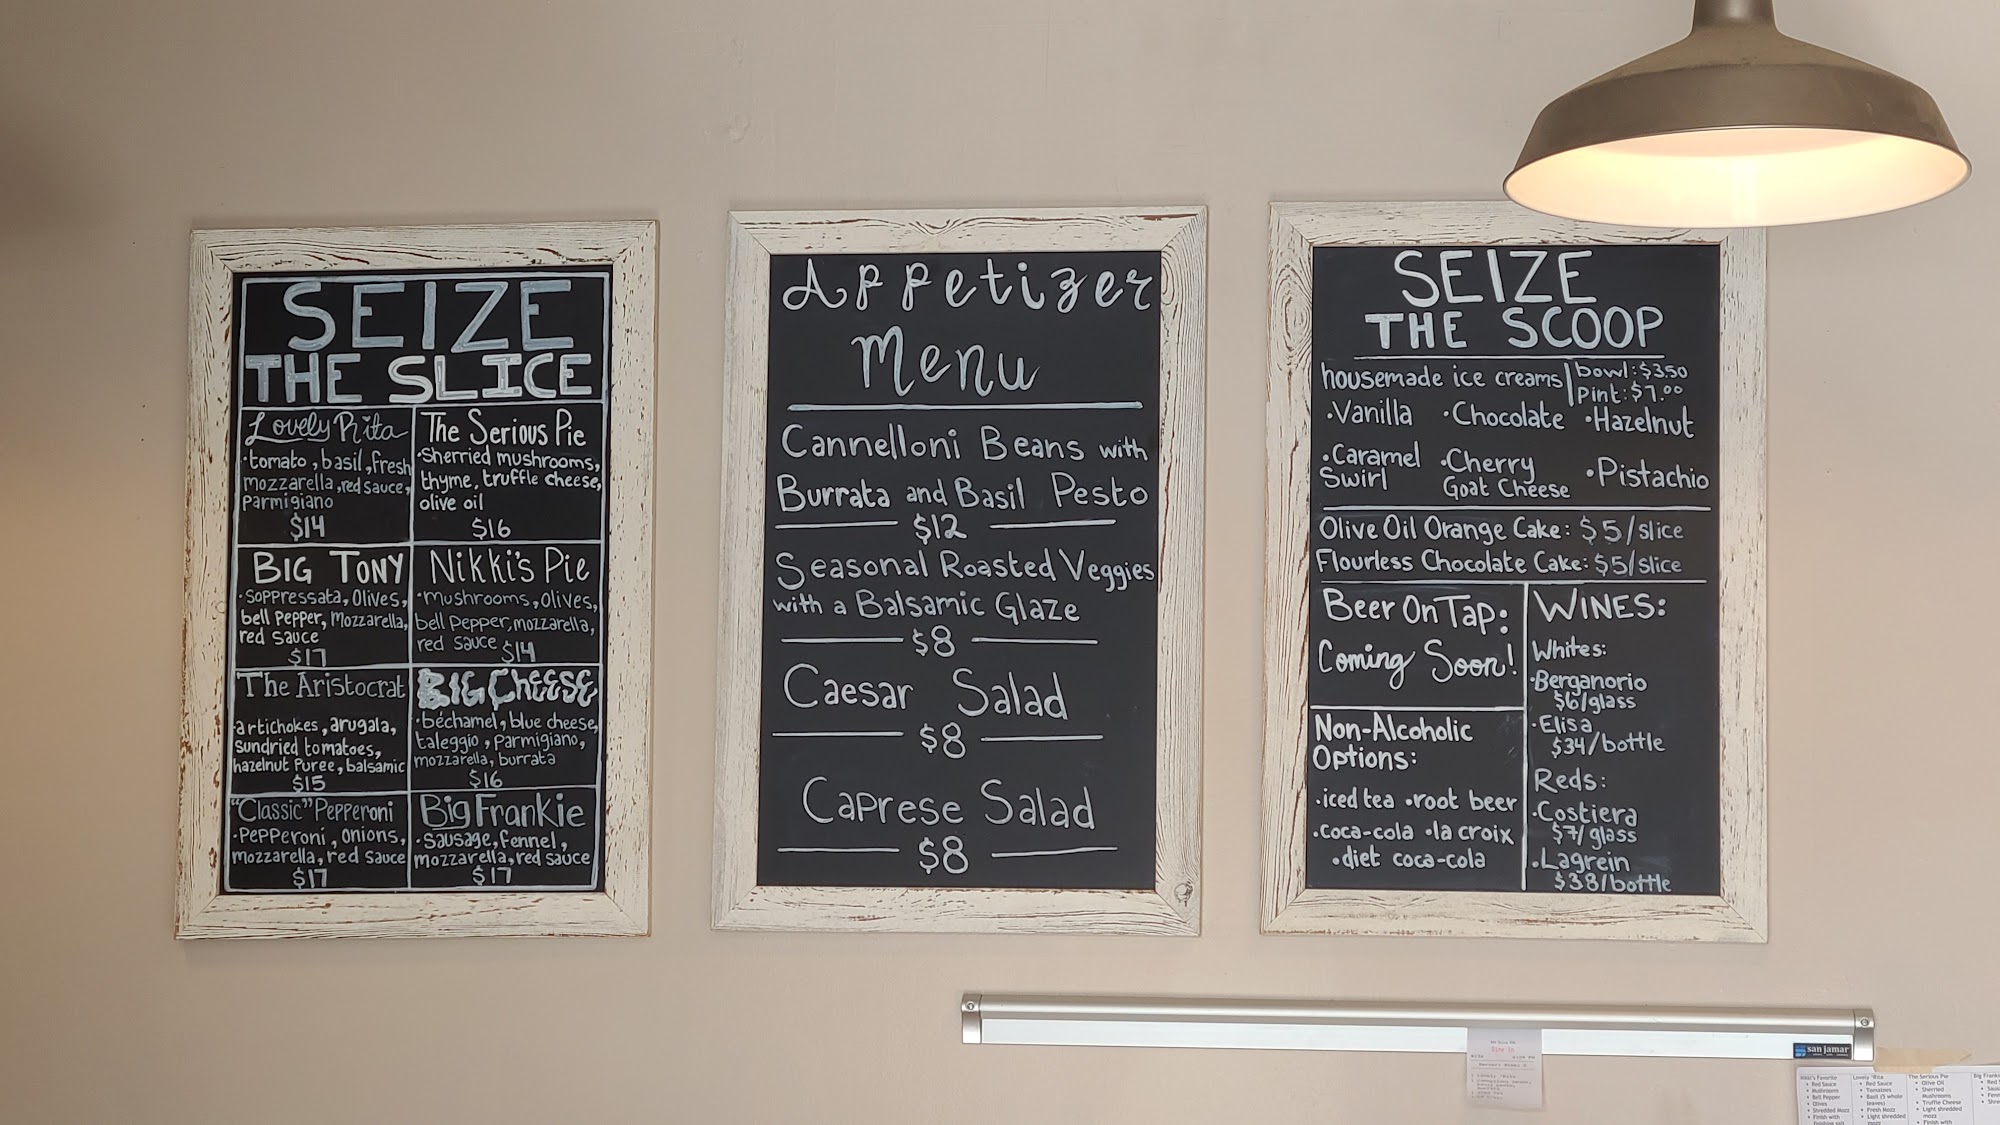 SEIZE
THE SLICE
Lovely Rita
·tomato, basil, fresh
mozzarella, red sauce,
parmigiano
$14
The Serious Pie
·Sherried mushrooms,
thyme, truffle cheese,
olive oil
$16
BIG TONY
·Soppressata, Olives,
bell pepper, mozzarella,
red sauce
$17
Nikki's Pie
·mushrooms, olives,
bell pepper, mozzarella,
red sauce $14
The Aristocrat
·artichokes, arugala,
sundried tomatoes,
hazelnut puree, balsamic
$15
BIG CHEESE
·béchamel, blue cheese,
taleggio, parmigiano,
mozzarella, burrata
$16
"Classic" Pepperoni
·Pepperoni, onions,
mozzarella, red sauce
$17
Big Frankie
·Sausage, fennel,
mozzarella, red sauce
$17
Appetizer
Menu
Cannelloni Beans with
Burrata and Basil Pesto
$12
Seasonal Roasted Veggies
with a Balsamic Glaze
$8
Caesar Salad
$8
Caprese Salad
$8
SEIZE
THE SCOOP
housemade ice creams
bowl: $3.50
pint: $7.00
·Vanilla ·Chocolate ·Hazelnut
·Caramel Swirl ·Cherry Goat Cheese ·Pistachio
Olive Oil Orange Cake: $5/slice
Flourless Chocolate Cake: $5/slice
Beer On Tap:
Coming Soon!
Non-Alcoholic
Options:
·iced tea ·root beer
·coca-cola ·la croix
·diet coca-cola
WINES:
Whites:
·Berganorio
$6/glass
·Elisa
$34/bottle
Reds:
·Costiera
$7/glass
·Lagrein
$38/bottle
san jamar
Dine In
Nikki's Favorite
• Red Sauce
• Mushrooms
• Bell Pepper
• Olives
• Shredded Mozz
• Finish with
Lovely Rita
• Red Sauce
• Tomatoes
• Basil (5 whole
leaves)
• Fresh Mozz
• Light shredded
mozz
The Serious Pie
• Olive Oil
• Sherried
Mushrooms
• Truffle Cheese
• Light shredded
mozz
• Finish with